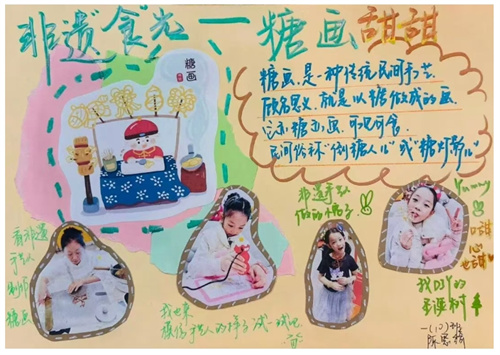 非遗食光——糖画甜甜
糖画
糖画,是一种传统民间手艺
顾名思义,就是以糖做成的画
它亦糖亦画,可观可食
民间俗称"倒糖人儿"或"糖灯影儿"
看非遗
手艺人
制作
糖画
我也来
模仿手艺人的样子试一试吧
非遗手艺人
做的
Yummy
口甜
心也甜
我DIY的
圣诞树
一(10)班
陈思